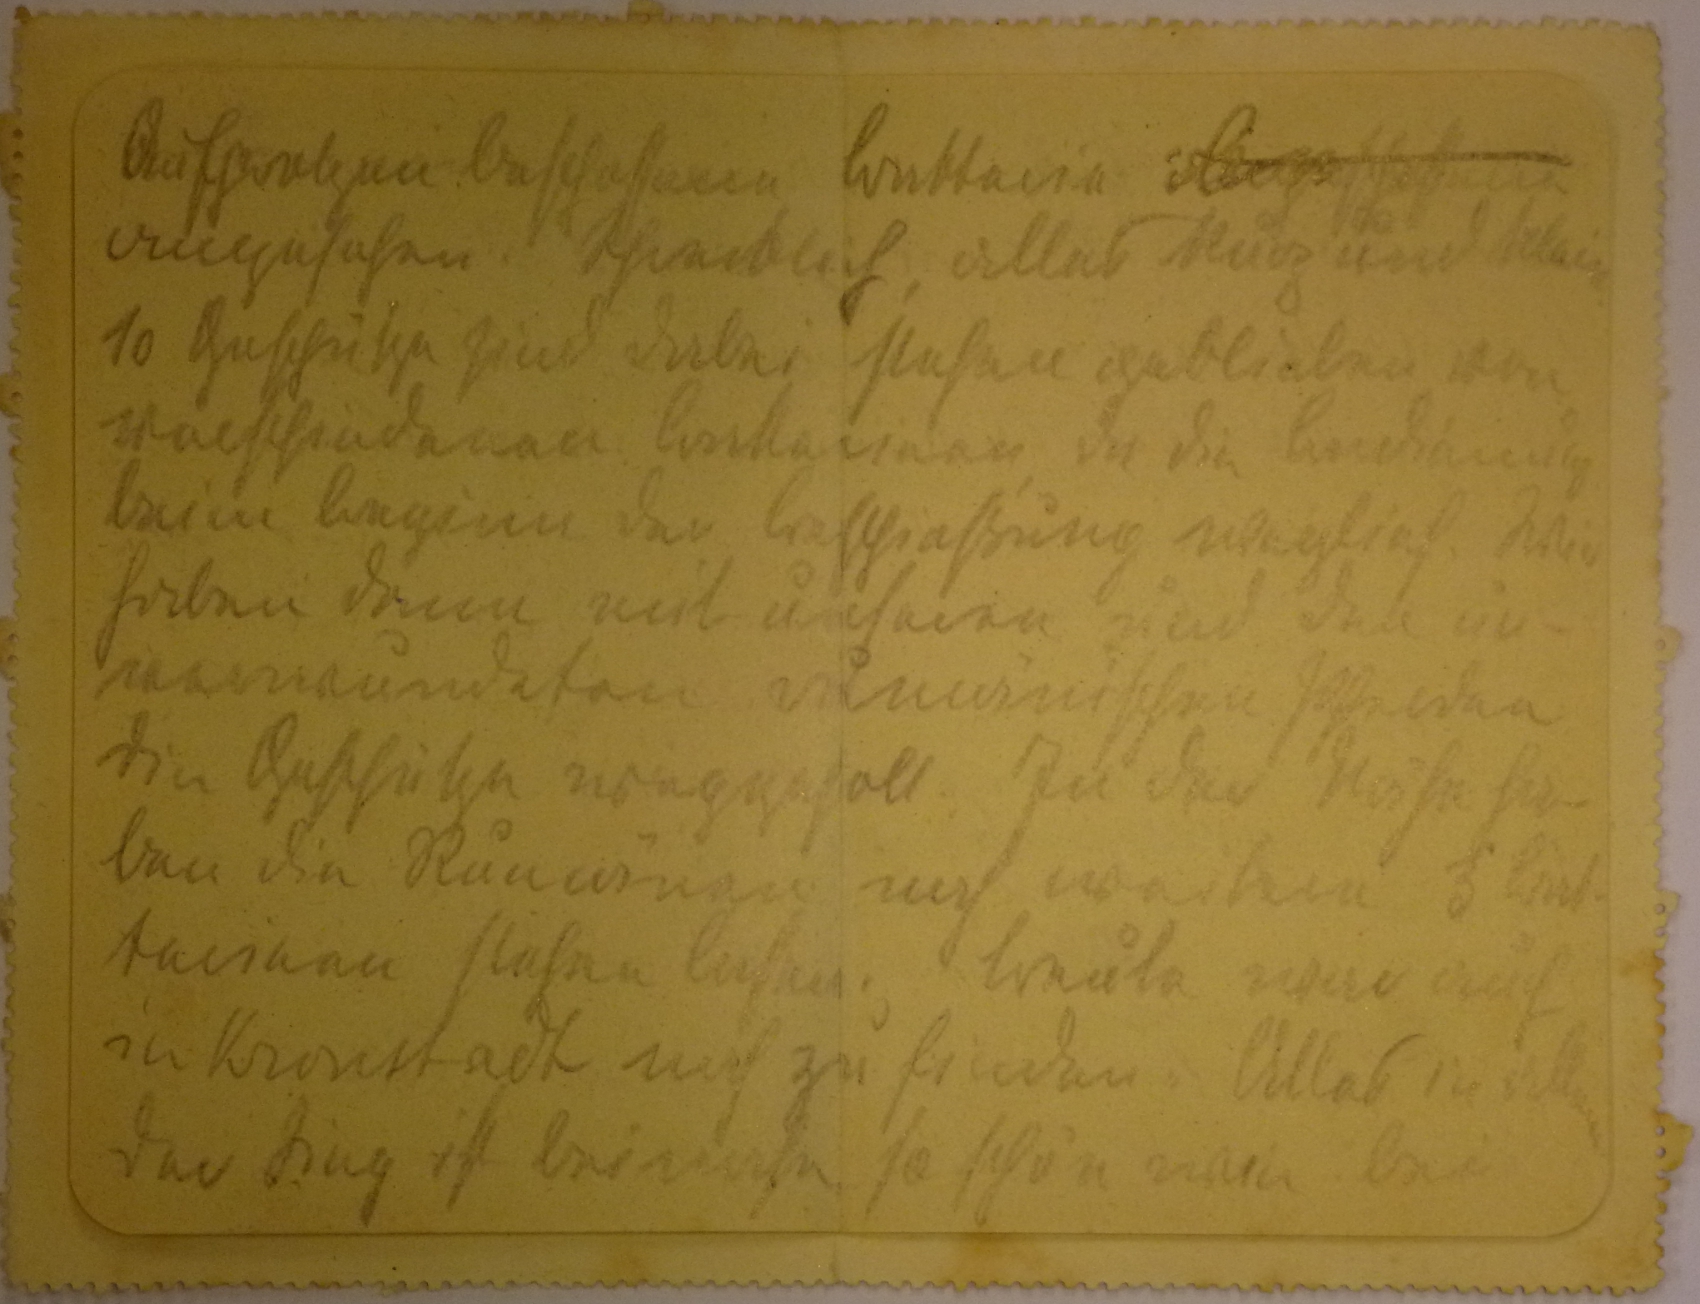 Aufprotzen beschossene Batterie
angesehen. Schrecklich, alles kurz und klein
10 Geschütze sind dabei stehen geblieben von
verschiedenen Batterieen, da die Bedienung
beim Beginn der Beschießung weglief. Wir
haben dann mit unseren und den un-
verwundeten rumänischen Pferden
die Geschütze weggeholt. In der Nähe ha-
ben die Rumänen noch weitere 3 Bat-
terieen stehen lassen. Beute war auch
in Kronstadt noch zu finden. Alles in Allem
der Krieg ist beinahe so schön wie bei